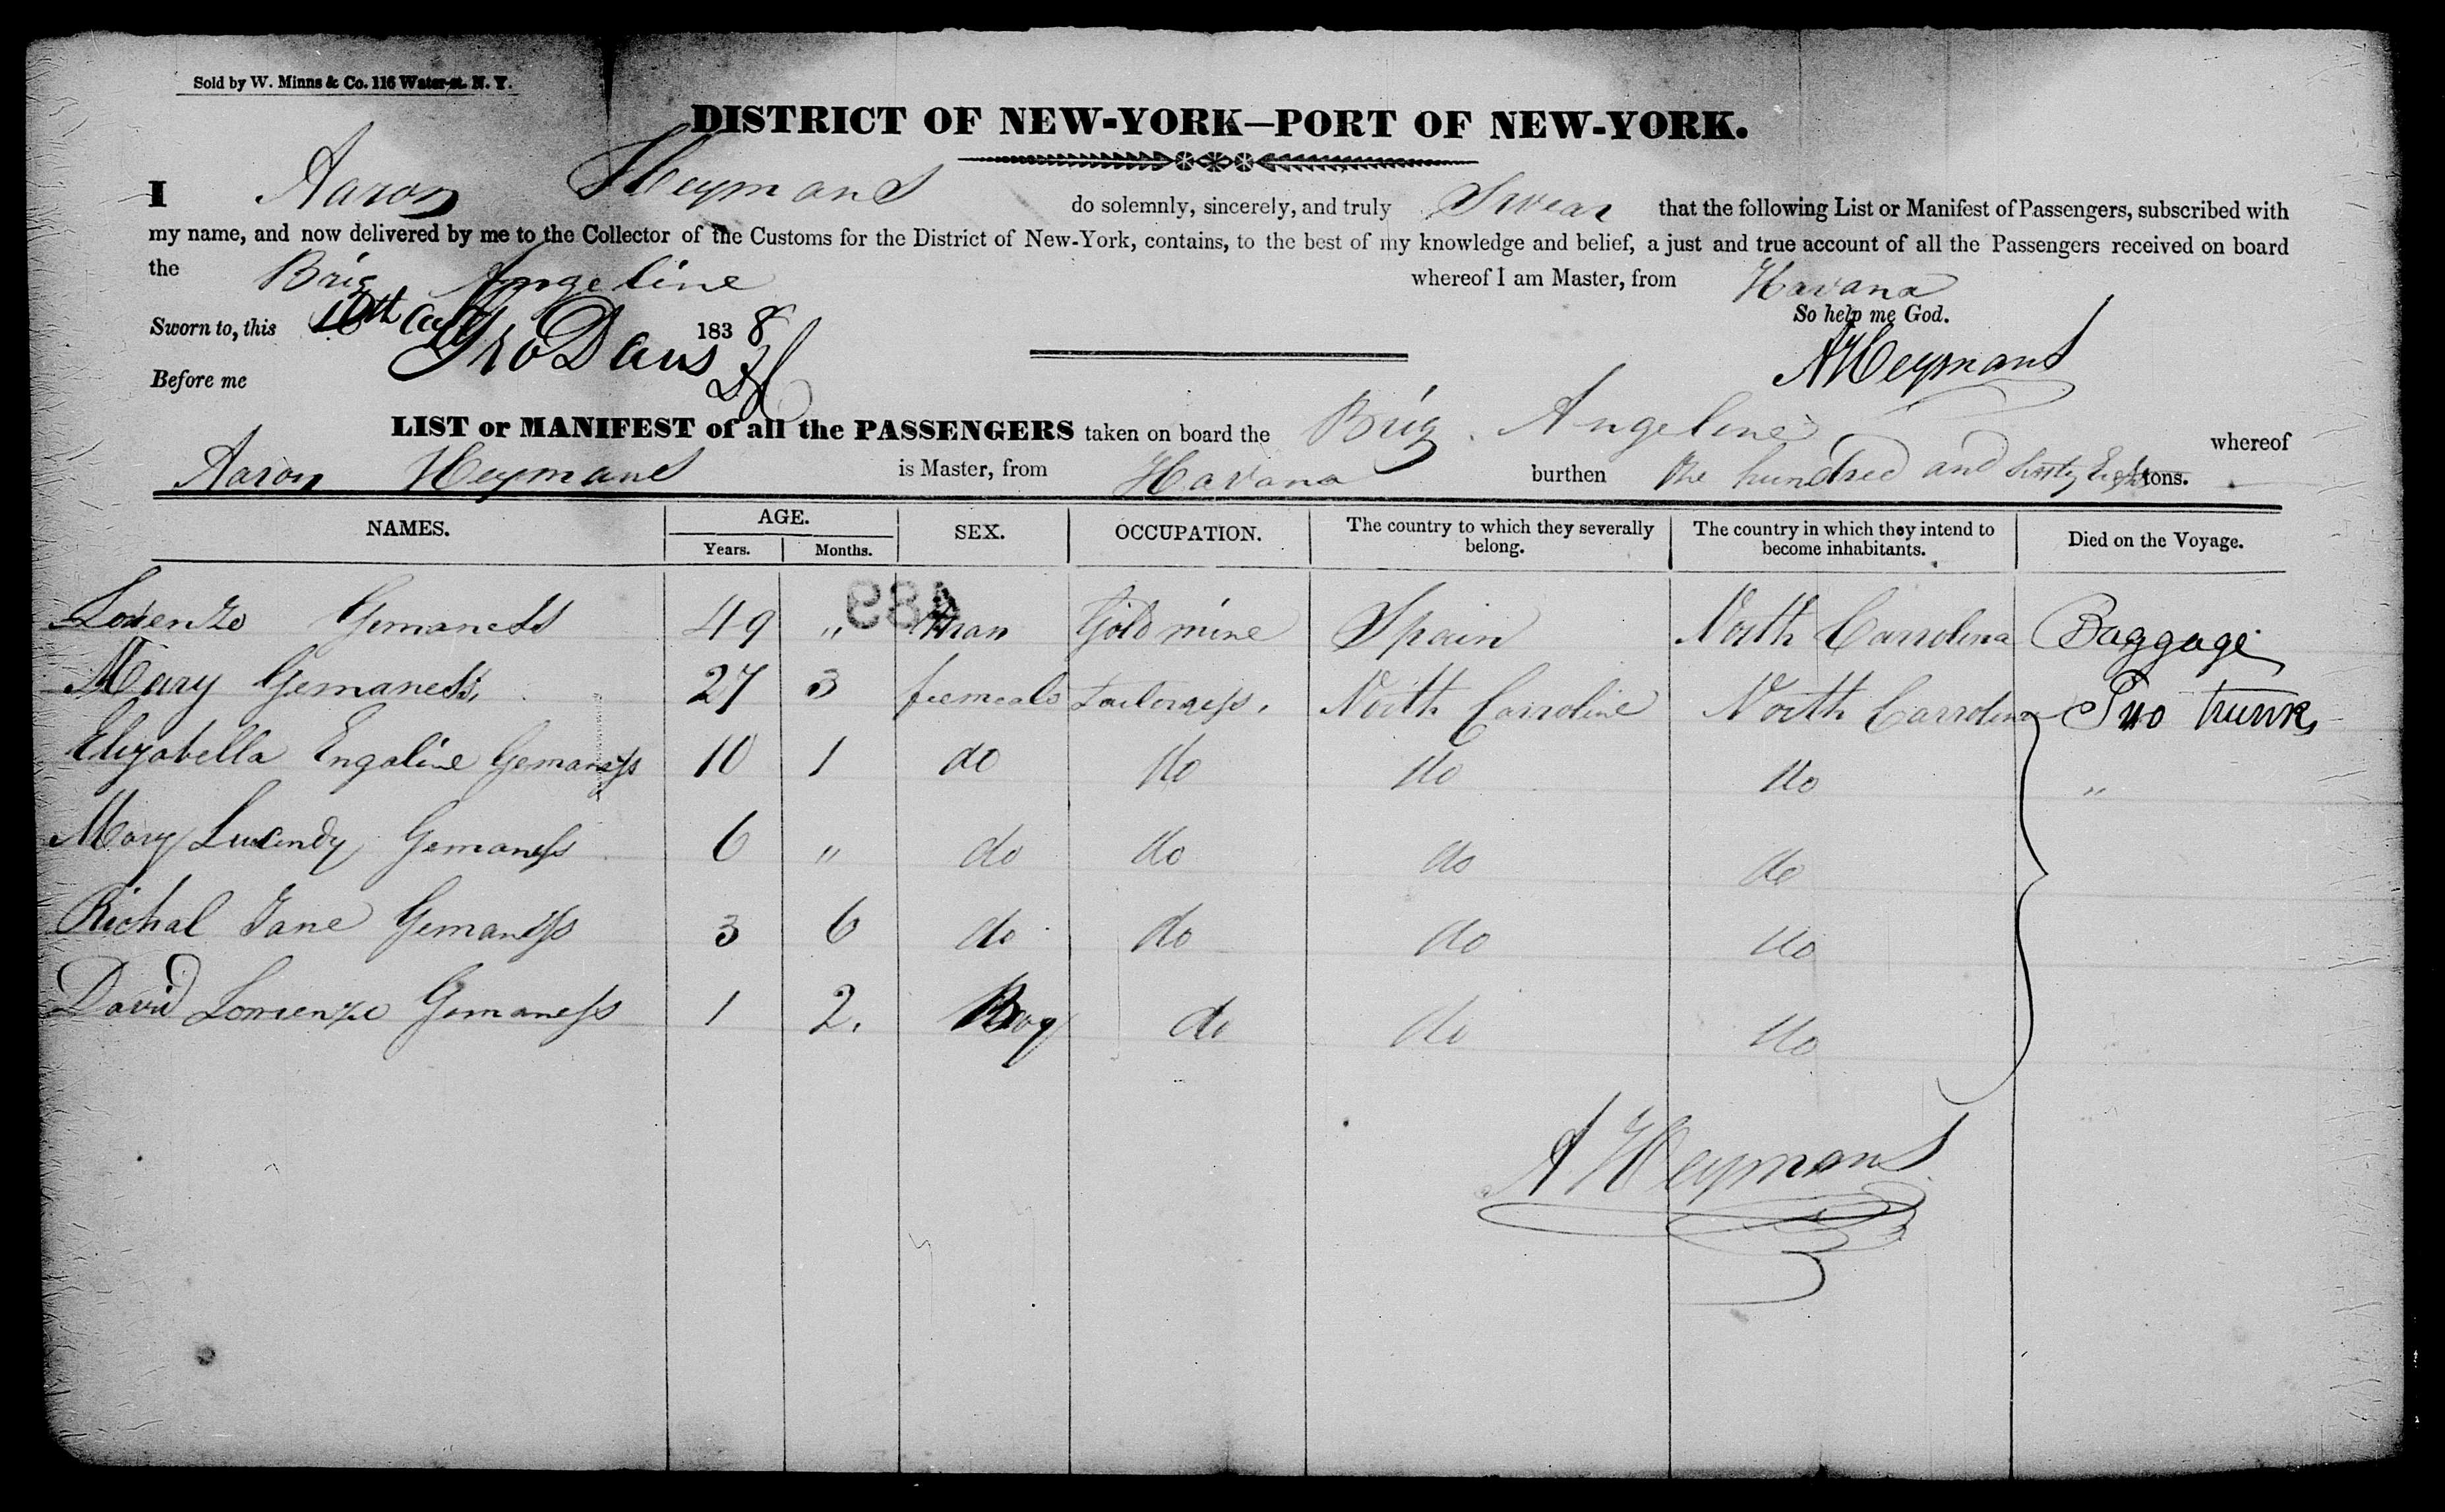 Sold by W. Minns & Co. 116 Water-st. N. Y.
DISTRICT OF NEW-YORK—PORT OF NEW-YORK.
I Aaron Heymans do solemnly, sincerely, and truly Swear that the following List or Manifest of Passengers, subscribed with
my name, and now delivered by me to the Collector of the Customs for the District of New-York, contains, to the best of my knowledge and belief, a just and true account of all the Passengers received on board
the Brig Angeline whereof I am Master, from Havana
So help me God.
Sworn to, this 10th 1838
AHeymans
Before me
LIST or MANIFEST of all the PASSENGERS taken on board the Brig Angeline whereof
Aaron Heymans is Master, from Havana burthen hundred and tons.
NAMES. AGE. SEX. OCCUPATION. The country to which they severally belong. The country in which they intend to become inhabitants. Died on the Voyage.
Years. Months.
489
Lorenzo Gemaness 49 " Man Gold mine Spain North Carrolina Baggage
Mary Gemaness, 27 3 feemeale Tailoress. North Carroline North Carrolina Two trunks
Elizabella Engaline Gemaness 10 1 do do do do "
Mary Lucindy Gemaness 6 " do do do do
Richal Jane Gemaness 3 6 do do do do
David Lorrenzo Gemaness 1 2. Boy do do do
A Heymans